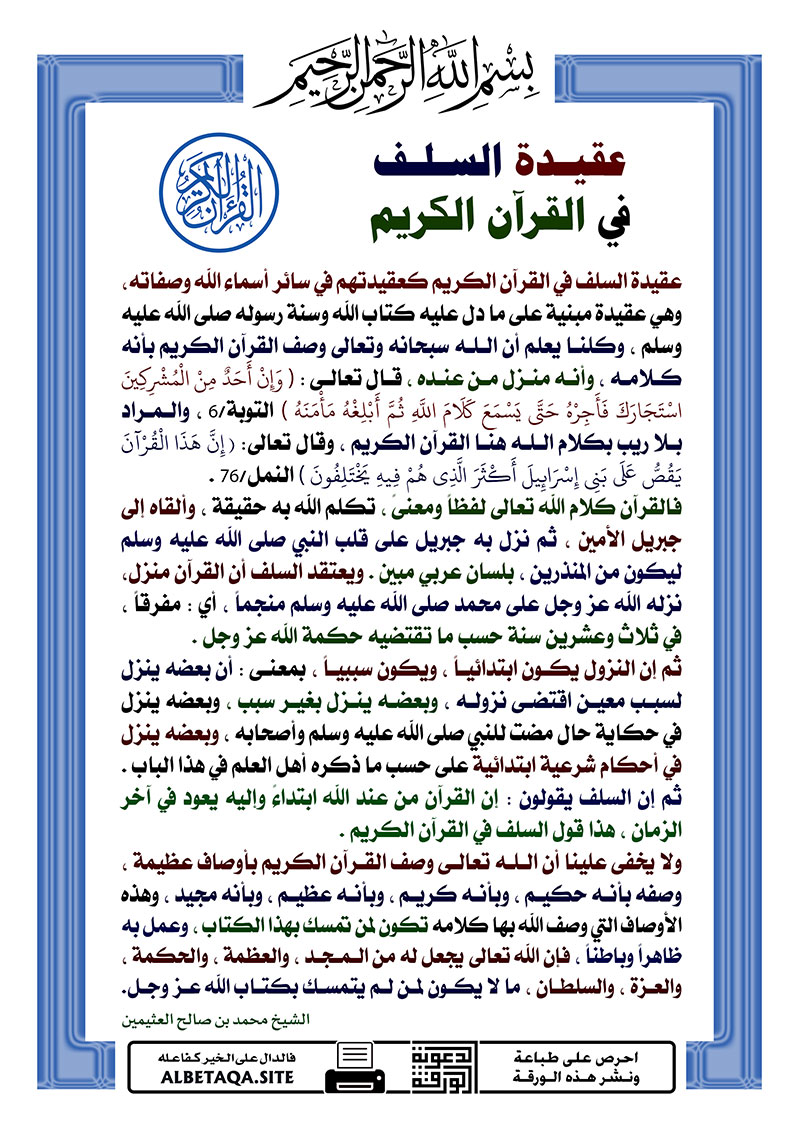 بِسْمِ اللَّهِ الرَّحْمَنِ الرَّحِيمِ
عقيدة السلف
في القرآن الكريم
القرآن الكريم
عقيدة السلف في القرآن الكريم كعقيدتهم في سائر أسماء الله وصفاته ،
وهي عقيدة مبنية على ما دل عليه كتاب الله وسنة رسوله صلى الله عليه
وسلم ، وكلنا يعلم أن الله سبحانه وتعالى وصف القرآن الكريم بأنه
كلامه ، وأنه منزل من عنده ، قال تعالى : ( وَإِنْ أَحَدٌ مِنْ الْمُشْرِكِينَ
اسْتَجَارَكَ فَأَجِرْهُ حَتَّى يَسْمَعَ كَلَامَ اللَّهِ ثُمَّ أَبْلِغْهُ مَأْمَنَهُ ) التوبة/6 ، والمراد
بلا ريب بكلام الله هنا القرآن الكريم ، وقال تعالى: ( إِنَّ هَذَا الْقُرْآنَ
يَقُصُّ عَلَى بَنِي إِسْرَائِيلَ أَكْثَرَ الَّذِي هُمْ فِيهِ يَخْتَلِفُونَ ) النمل/76 .
فالقرآن كلام الله تعالى لفظاً ومعنىً ، تكلم الله به حقيقة ، وألقاه إلى
جبريل الأمين ، ثم نزل به جبريل على قلب النبي صلى الله عليه وسلم
ليكون من المنذرين ، بلسان عربي مبين . ويعتقد السلف أن القرآن منزل،
نزله الله عز وجل على محمد صلى الله عليه وسلم منجماً ، أي : مفرقاً ،
في ثلاث وعشرين سنة حسب ما تقتضيه حكمة الله عز وجل .
ثم إن النزول يكون ابتدائياً ، ويكون سببياً ، بمعنى : أن بعضه ينزل
لسبب معين اقتضى نزوله ، وبعضه ينزل بغير سبب ، وبعضه ينزل
في حكاية حال مضت للنبي صلى الله عليه وسلم وأصحابه ، وبعضه ينزل
في أحكام شرعية ابتدائية على حسب ما ذكره أهل العلم في هذا الباب .
ثم إن السلف يقولون : إن القرآن من عند الله ابتداءً وإليه يعود في آخر
الزمان ، هذا قول السلف في القرآن الكريم .
ولا يخفى علينا أن الله تعالى وصف القرآن الكريم بأوصاف عظيمة ،
وصفه بأنه حكيم ، وبأنه كريم ، وبأنه عظيم ، وبأنه مجيد ، وهذه
الأوصاف التي وصف الله بها كلامه تكون لمن تمسك بهذا الكتاب ، وعمل به
ظاهراً وباطناً ، فإن الله تعالى يجعل له من المجد ، والعظمة ، والحكمة ،
والعزة ، والسلطان ، ما لا يكون لمن لم يتمسك بكتاب الله عز وجل.
الشيخ محمد بن صالح العثيمين
احرص على طباعة
ونشر هذه الورقة
الورقة الدعوية
فالدال على الخير كفاعله
ALBETAQA.SITE